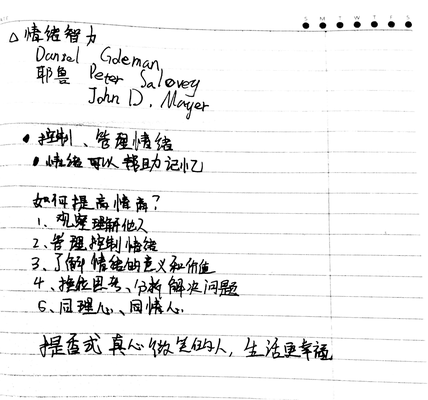 S M T W T F S
△ 情绪智力
Daniel Goleman
耶鲁 Peter Salovey
John D. Mayer
• 控制、管理情绪
• 情绪可以帮助记忆
如何提高情商?
1、观察理解他人
2、管理控制情绪
3、了解情绪的意义和价值
4、换位思考、分析解决问题
5、同理心、同情心
是否 真心微笑的人,生活更幸福